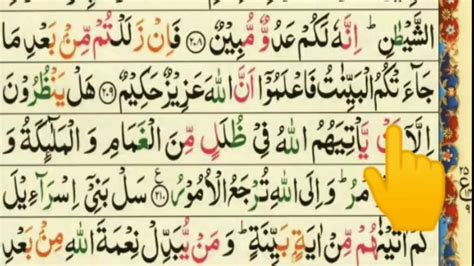 الشَّيْطٰنِ ؕ اِنَّهٗ لَكُمْ عَدُوٌّ مُّبِيْنٌ ﴿۲۰۸﴾ فَاِنْ زَلَلْتُمْ مِّنْۢ بَعْدِ مَا
جَآءَتْكُمُ الْبَيِّنٰتُ فَاعْلَمُوْۤا اَنَّ اللّٰهَ عَزِيْزٌ حَكِيْمٌ ﴿۲۰۹﴾ هَلْ يَنْظُرُوْنَ
اِلَّاۤ يَّاْتِيَهُمُ اللّٰهُ فِيْ ظُلَلٍ مِّنَ الْغَمَامِ وَ الْمَلٰٓئِكَةُ وَ
مْرُ ؕ وَ اِلَى اللّٰهِ تُرْجَعُ الْاُمُوْرُ ﴿۲۱۰﴾ ع سَلْ بَنِيْۤ اِسْرَآءِيْلَ
كَمْ اٰتَيْنٰهُمْ مِّنْ اٰيَةٍۭ بَيِّنَةٍ ؕ وَ مَنْ يُّبَدِّلْ نِعْمَةَ اللّٰهِ مِنْۢ بَعْدِ